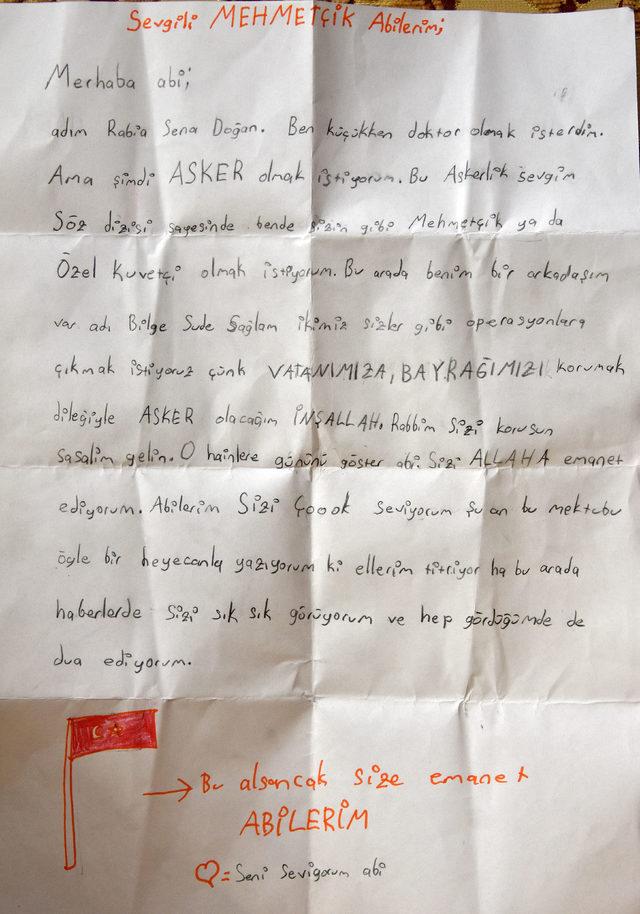 Sevgili MEHMETÇİK Abilerim;
Merhaba abi;
adım Rabia Sena Doğan. Ben küçükken doktor olmak isterdim.
Ama şimdi ASKER olmak istiyorum. Bu Askerlik sevgim
Söz dizisi sayesinde bende sizin gibi Mehmetçik ya da
Özel Kuvetçi olmak istiyorum. Bu arada benim bir arkadaşım
var adı Bilge Sude Sağlam ikimiz sizler gibi operasyonlara
çıkmak istiyoruz çünk VATANIMIZA, BAYRAĞIMIZI korumak
dileğiyle ASKER olacağım İNŞALLAH. Rabbim sizi korusun
sasalim gelin. O hainlere gününü göster abi. Sizi ALLAHA emanet
ediyorum. Abilerim Sizi Çoook seviyorum şu an bu mektubu
öyle bir heyecanla yazıyorum ki ellerim titriyor ha bu arada
haberlerde sizi sık sık görüyorum ve hep gördüğümde de
dua ediyorum.
→ Bu alsancak size emanet
ABİLERİM
♡= Seni seviyorum abi